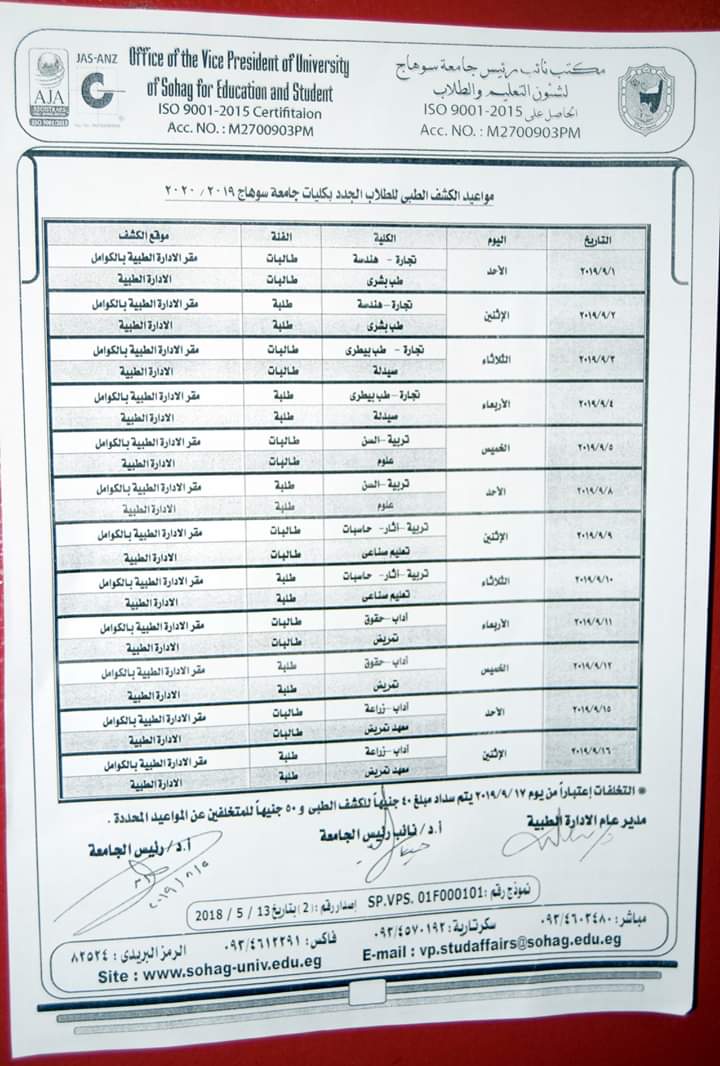 JAS-ANZ
AJA
REGISTRARS
ISO 9001/2015
Office of the Vice President of University
of Sohag for Education and Student
ISO 9001-2015 Certifitaion
Acc. NO. : M2700903PM
مكتب نائب رئيس جامعة سوهاج
لشئون التعليم والطلاب
الحاصل على ISO 9001-2015
Acc. NO. : M2700903PM
مواعيد الكشف الطبى للطلاب الجدد بكليات جامعة سوهاج ٢٠١٩/ ٢٠٢٠
التاريخ اليوم الكلية الفئة موقع الكشف
٢٠١٩/٩/١ الأحد تجارة - هندسة طالبات مقر الادارة الطبية بالكوامل
طب بشرى طالبات الادارة الطبية
٢٠١٩/٩/٢ الإثنين تجارة -هندسة طلبة مقر الادارة الطبية بالكوامل
طب بشرى طلبة الادارة الطبية
٢٠١٩/٩/٣ الثلاثاء تجارة - طب بيطرى طالبات مقر الادارة الطبية بالكوامل
صيدلة طالبات الادارة الطبية
٢٠١٩/٩/٤ الأربعاء تجارة -طب بيطرى طلبة مقر الادارة الطبية بالكوامل
صيدلة طلبة الادارة الطبية
٢٠١٩/٩/٥ الخميس تربية -السن طالبات مقر الادارة الطبية بالكوامل
علوم طالبات الادارة الطبية
٢٠١٩/٩/٨ الأحد تربية -السن طلبة مقر الادارة الطبية بالكوامل
علوم طلبة الادارة الطبية
٢٠١٩/٩/٩ الإثنين تربية -أثار- حاسبات طالبات مقر الادارة الطبية بالكوامل
تعليم صناعى طالبات الادارة الطبية
٢٠١٩/٩/١٠ الثلاثاء تربية -أثار- حاسبات طلبة مقر الادارة الطبية بالكوامل
تعليم صناعى طلبة الادارة الطبية
٢٠١٩/٩/١١ الأربعاء أداب -حقوق طالبات مقر الادارة الطبية بالكوامل
تمريض طالبات الادارة الطبية
٢٠١٩/٩/١٢ الخميس أداب -حقوق طلبة مقر الادارة الطبية بالكوامل
تمريض طلبة الادارة الطبية
٢٠١٩/٩/١٥ الأحد أداب -زراعة طالبات مقر الادارة الطبية بالكوامل
معهد تمريض طالبات الادارة الطبية
٢٠١٩/٩/١٦ الإثنين أداب -زراعة طلبة مقر الادارة الطبية بالكوامل
معهد تمريض طلبة الادارة الطبية
* التخلفات إعتباراً من يوم ٢٠١٩/٩/١٧ يتم سداد مبلغ ٤٠ جنيهاً للكشف الطبى و ٥٠ جنيهاً للمتخلفين عن المواعيد المحددة .
مدير عام الادارة الطبية
أ.د/ نائب رئيس الجامعة
أ.د/ رئيس الجامعة
نموذج رقم : SP.VPS. 01F000101 إصدار رقم : (2 ) بتاريخ 13 / 5 / 2018
مباشر: ٠٩٣/٤٦٠٣٤٨٠ سكرتارية: ٠٩٣/٤٥٧٠١٩٢ فاكس: ٠٩٣/٤٦١٢٢٩١ الرمز البريدى : ٨٢٥٢٤
E-mail : vp.studaffairs@sohag.edu.eg
Site : www.sohag-univ.edu.eg